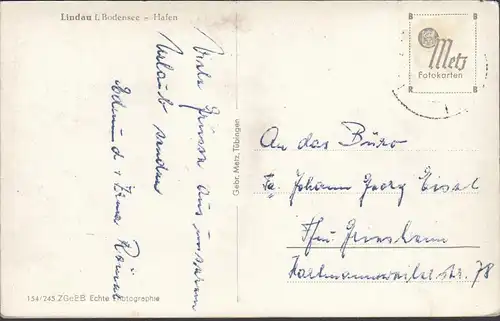 Lindau i. Bodensee – Hafen
Viele Grüsse aus unserem
Urlaub senden
Edmund + Erna
154/245 ZGeEB Echte Photographie
Gebr. Metz, Tübingen
B B
Metz
Fotokarten
R B
An das Büro
Fa. Johann Georg Eisel
Ffm. Griesheim
Hartmannsweiler str. 78